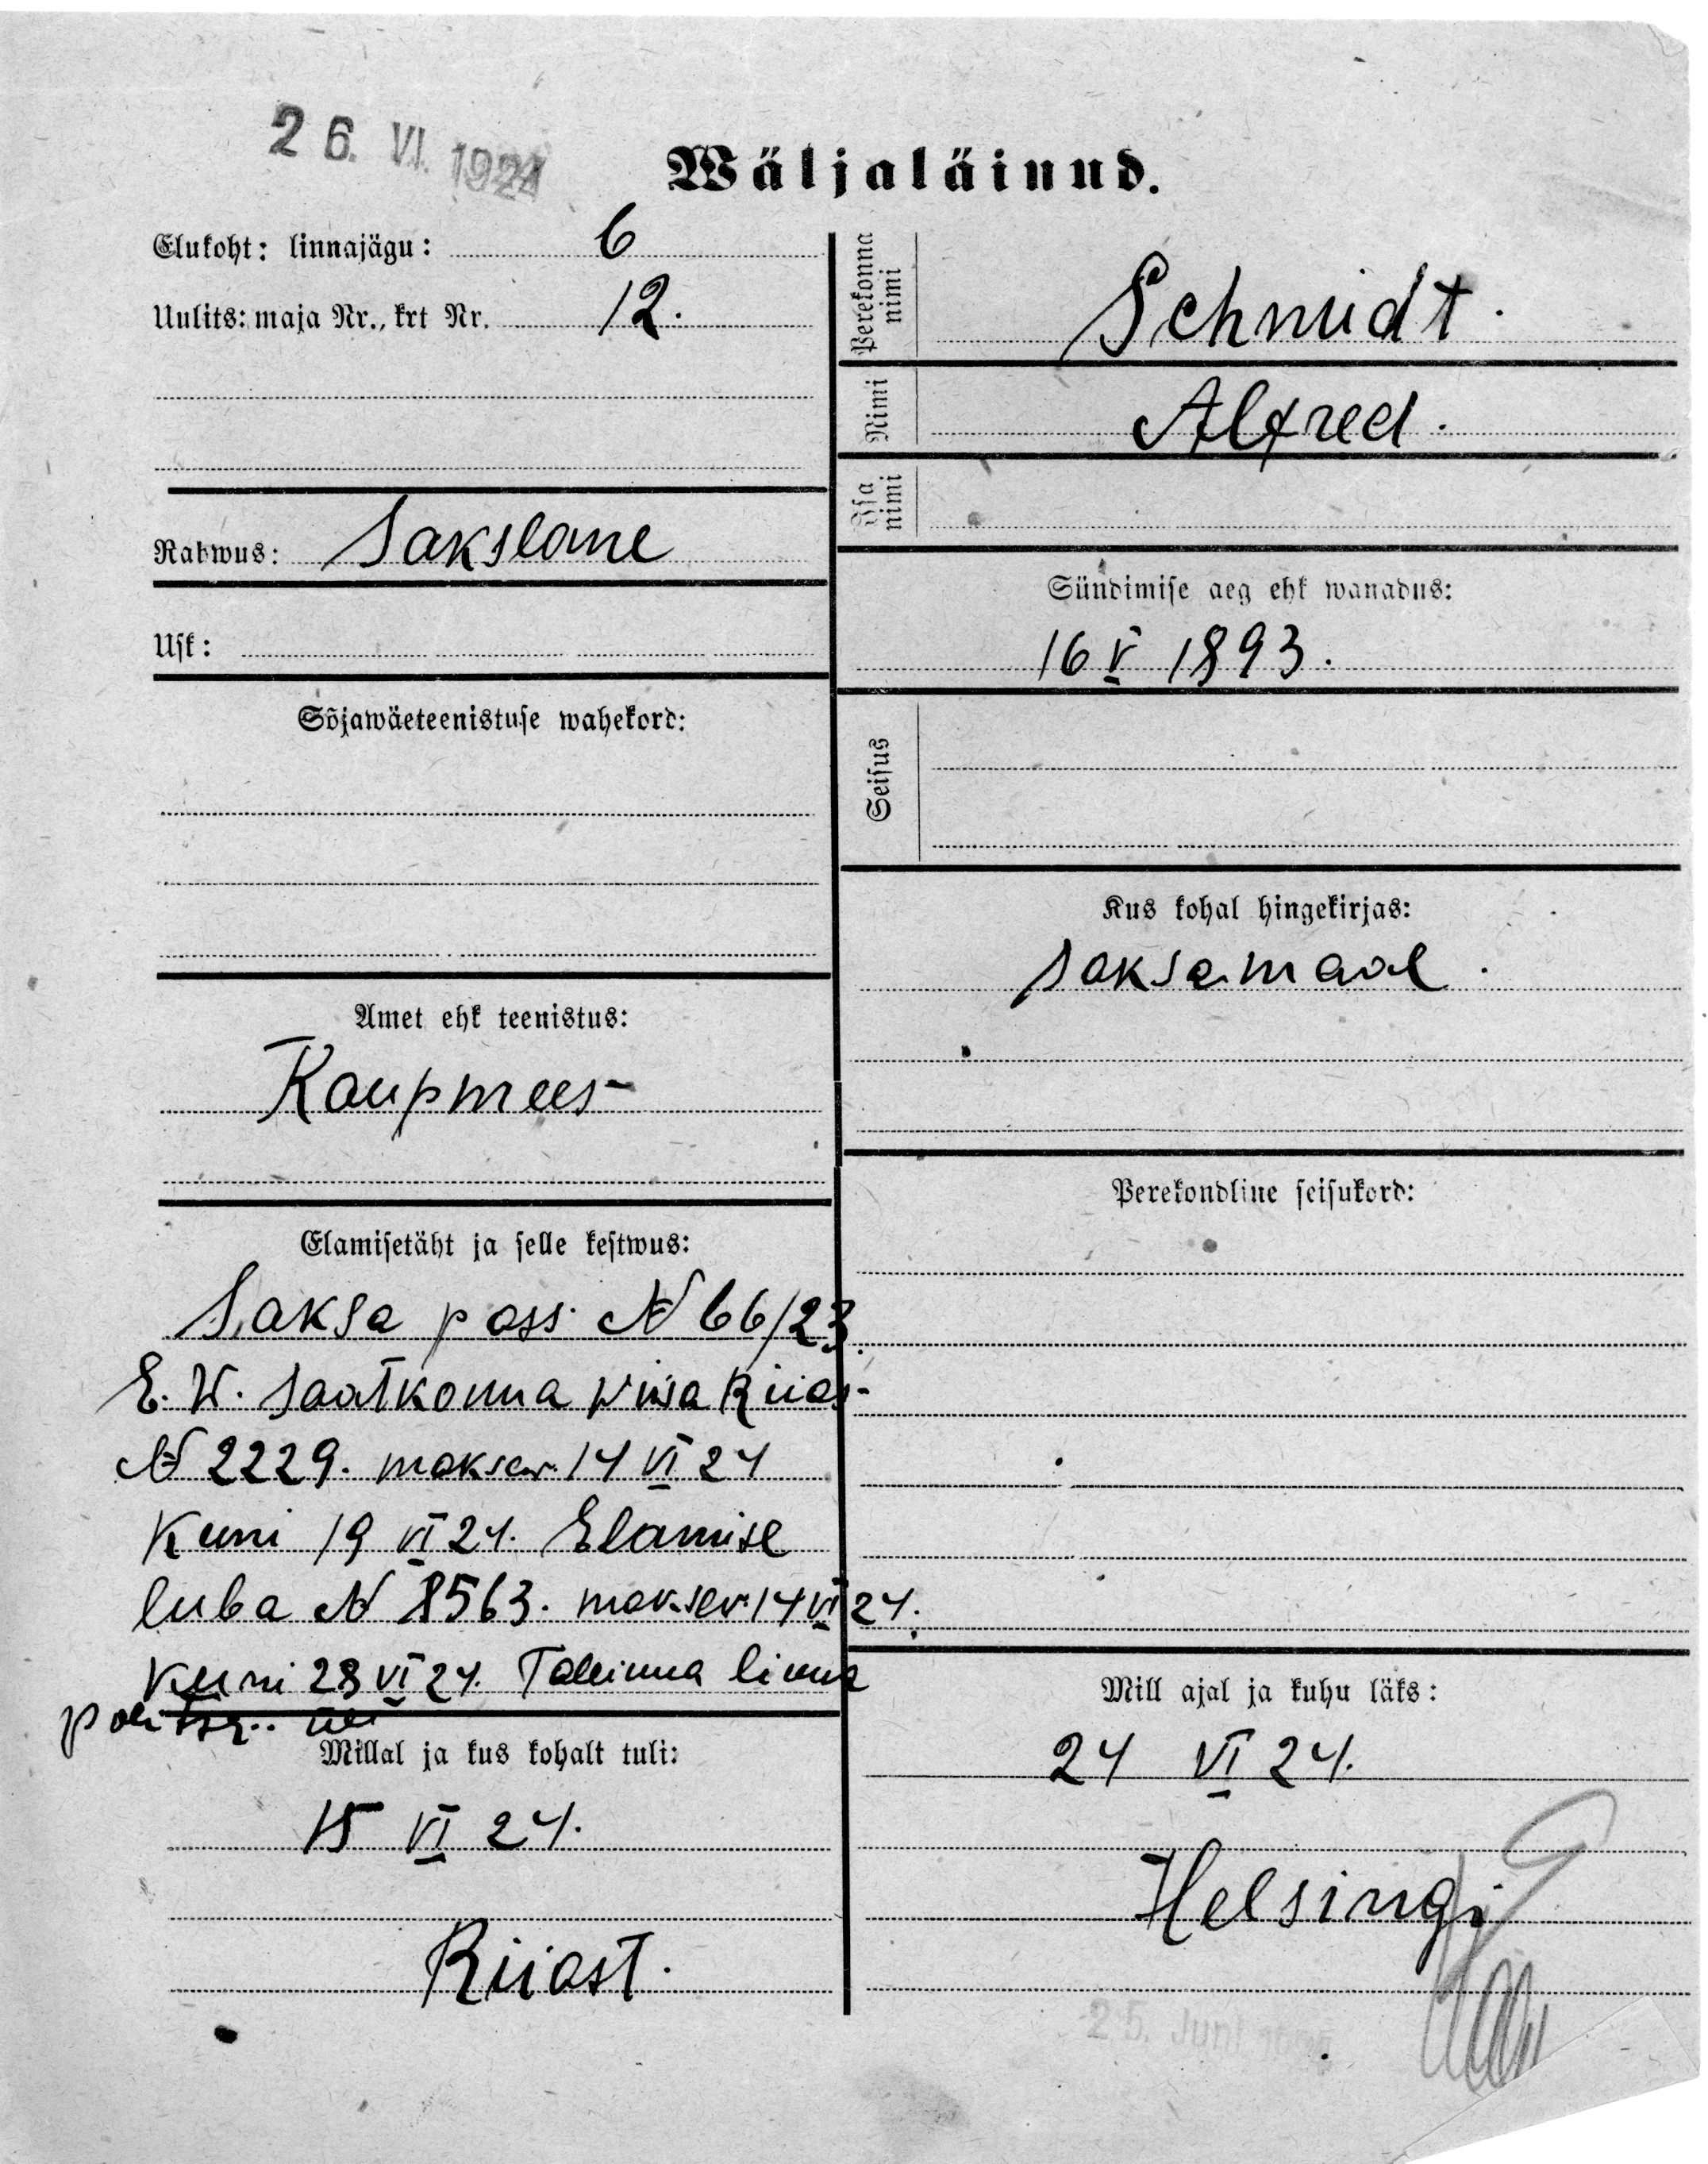 26. VI. 1924
Wäljaläinud.
Elukoht: linnajägu: 6
Uulits: maja Nr., krt Nr. 12.
Rahwus: Sakslane
Usk:
Sõjawäeteenistuse wahekord:
Amet ehk teenistus:
Kaupmees
Elamisetäht ja selle kestwus:
Saksa pass N 66/23.
E. W. saatkonna wiisa Riias
N 2229. maksew 14 VI 24
kuni 19 VI 24. Elamise
luba N 8563. maksew 14 VI 24.
kuni 28 VI 24. Tallinna linna
Millal ja kus kohalt tuli:
15 VI 24.
Riiast.
Perekonna nimi
Schmidt.
Nimi
Alfred.
Isa nimi
Sündimise aeg ehk wanadus:
16 V 1893.
Seisus
Kus kohal hingekirjas:
saksamaal.
Perekondline seisukord:
Mill ajal ja kuhu läks:
24 VI 24.
Helsingi
25. Juni